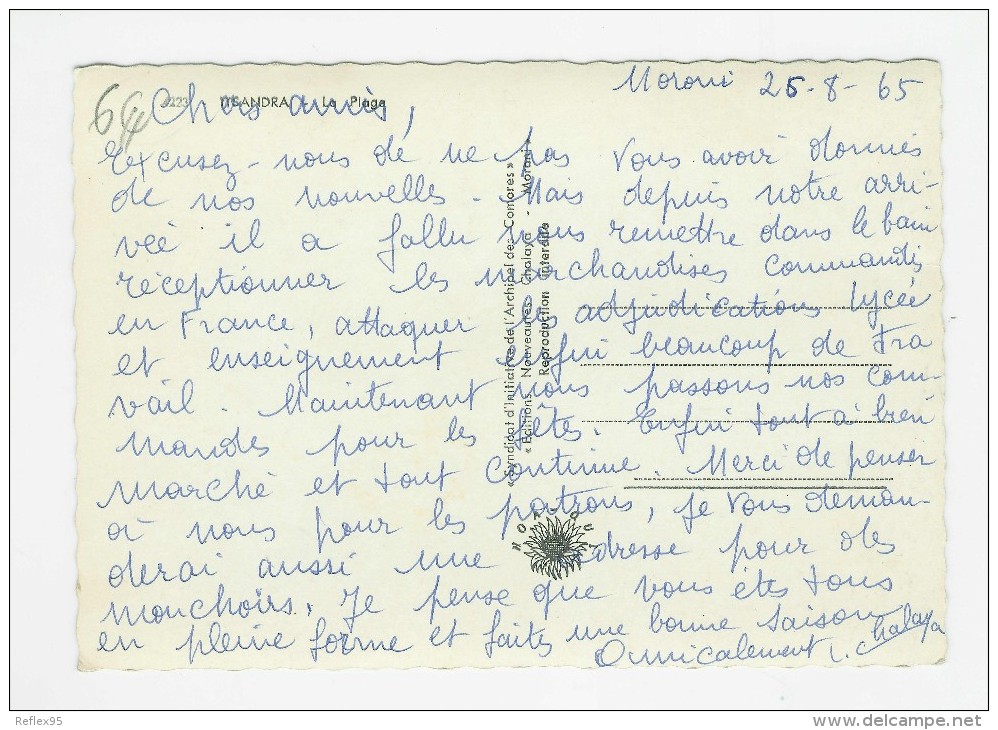 Moroni 25-8-65
64
6223 ITSANDRA - La Plage
Chers amis,
Excusez-nous de ne pas vous avoir donnés
de nos nouvelles - Mais depuis notre arri-
vée il a fallu nous remettre dans le bain
réceptionner les marchandises commandés
en France, attaquer les adjudications lycée
et enseignement enfin beaucoup de tra
vail. Maintenant nous passons nos com-
mandes pour les fêtes. Enfin tout a bien
marché et tout continue. Merci de penser
à nous pour les patrons, je vous deman-
derai aussi une adresse pour des
mouchoirs. Je pense que vous êtes tous
en pleine forme et faites une bonne saison
Amicalement L. Chalaya
« Syndicat d'Initiative de l'Archipel des Comores »
« Editions Nouveautés Chalaya - Moroni »
Reproduction Interdite
Reflex95
delcampe.net